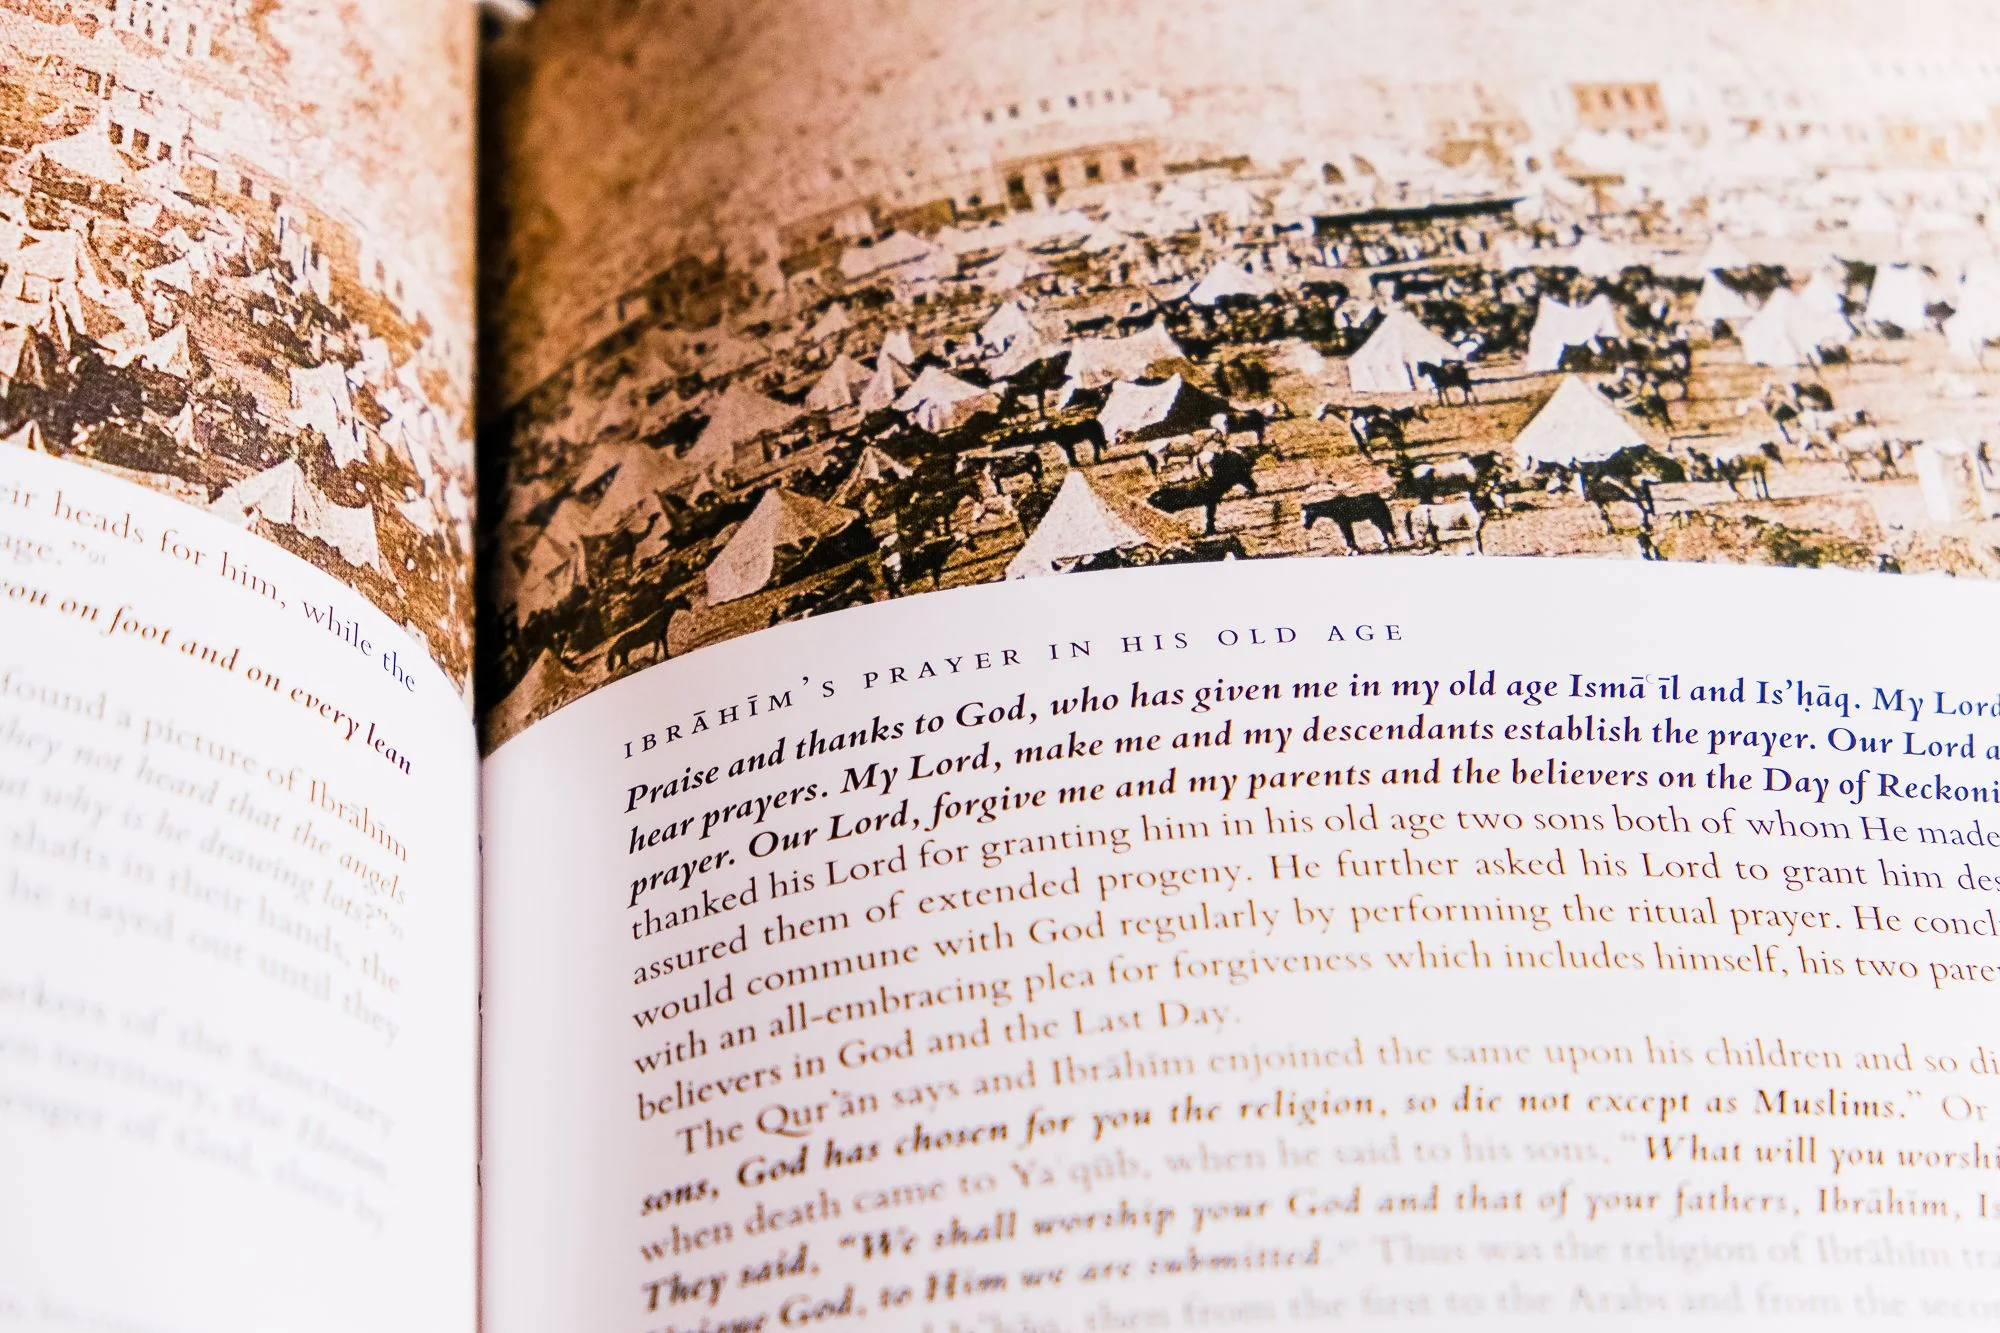 eir heads for him, while the
age."
you on foot and on every lean
found a picture of Ibrāhīm
they not heard that the angels
why is he drawing lots?"
shafts in their hands, the
he stayed out until they
of the Sanctuary
territory, the
of God, then by
IBRĀHĪM'S PRAYER IN HIS OLD AGE
Praise and thanks to God, who has given me in my old age Ismāʿīl and Is'ḥāq. My Lord
hear prayers. My Lord, make me and my descendants establish the prayer. Our Lord a
prayer. Our Lord, forgive me and my parents and the believers on the Day of Reckoni
thanked his Lord for granting him in his old age two sons both of whom He made
assured them of extended progeny. He further asked his Lord to grant him des
would commune with God regularly by performing the ritual prayer. He concl
with an all-embracing plea for forgiveness which includes himself, his two pare
believers in God and the Last Day.
The Qur'ān says and Ibrāhīm enjoined the same upon his children and so di
sons, God has chosen for you the religion, so die not except as Muslims." Or
when death came to Ya'qūb, when he said to his sons, "What will you worshi
They said, "We shall worship your God and that of your fathers, Ibrāhīm, Is
God, to Him we are submitted." Thus was the religion of Ibrāhīm tra
them from the first to the Arabs and from the seco